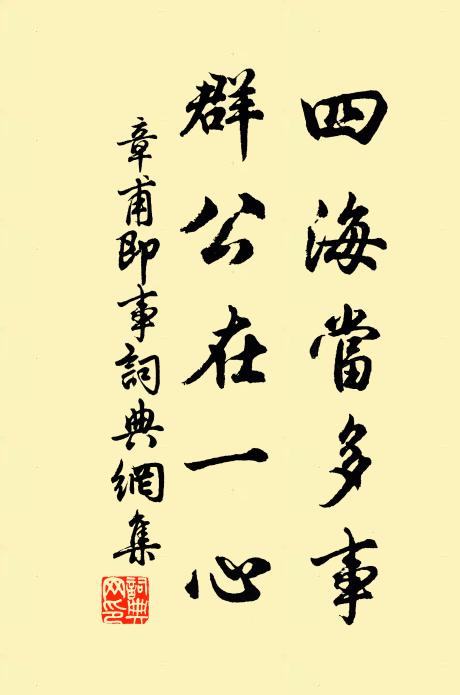 四海當多事
群公在一心
章甫即事詞典網集
詞典網印